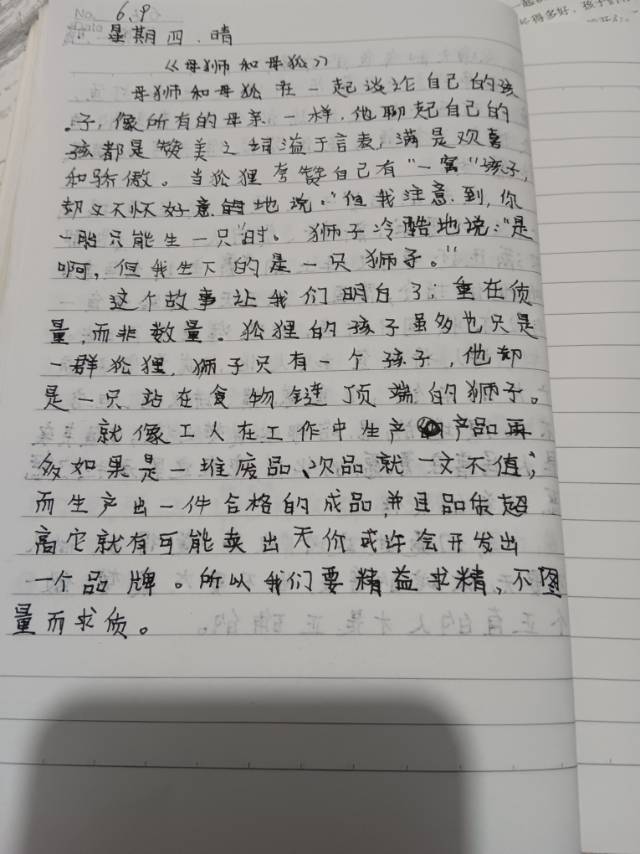 No.
6.9
Date
星期四.晴
《母狮和母狐》
母狮和母狐在一起谈论自己的孩
子,像所有的母亲一样,他聊起自己的
孩都是赞美之词溢于言表,满是欢喜
和骄傲。当狐狸夸赞自己有"一窝"孩子,
却又不怀好意的地说:"但我注意到,你
一胎只能生一只"时。狮子冷酷地说:"是
啊,但我生下的是一只狮子。"
这个故事让我们明白了:重在质
量,而非数量。狐狸的孩子虽多也只是
一群狐狸,狮子只有一个孩子,他却
是一只站在食物链顶端的狮子。
就像工人在工作中生产产品再
多如果是一堆废品、次品就一文不值;
而生产出一件合格的成品,并且品质超
高它就有可能卖出天价或许会开发出
一个品牌。所以我们要精益求精,不图
量而求质。